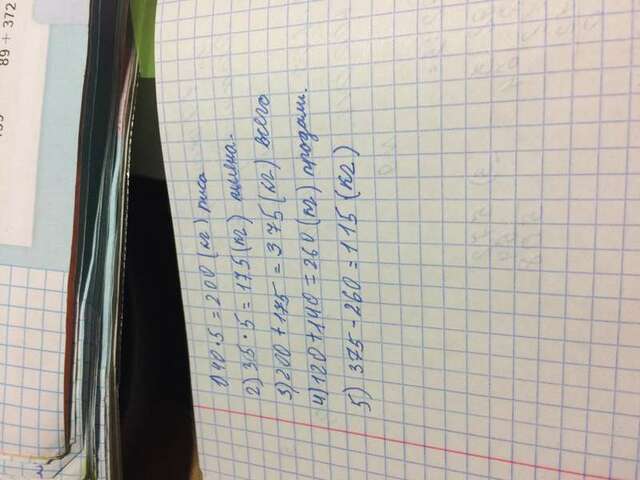 89 + 372
1) 40 · 5 = 200 (кг) риса
2) 35 · 5 = 175 (кг) пшена.
3) 200 + 175 = 375 (кг) всего
4) 120 + 140 = 260 (кг) продали.
5) 375 - 260 = 115 (кг)